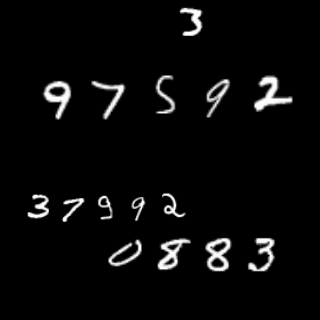 3
97592
37992
0883